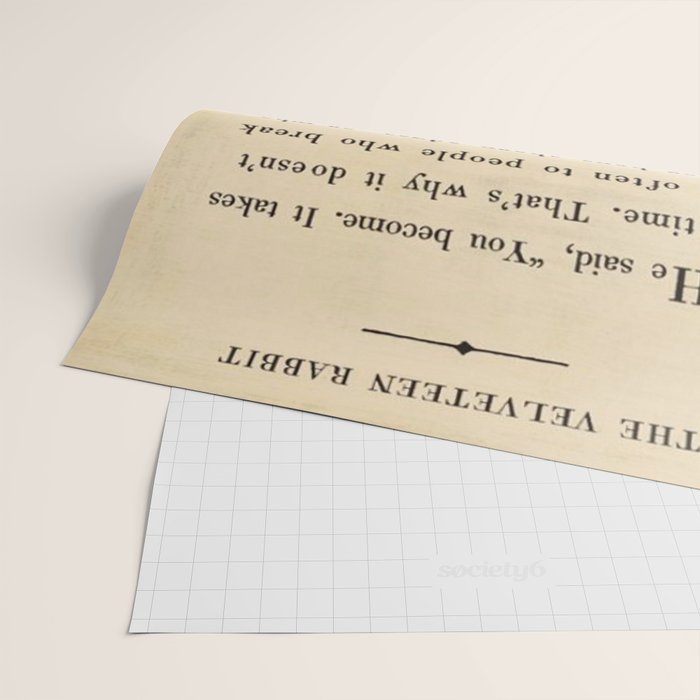 THE VELVETEEN RABBIT
He said, “You become. It takes
time. That’s why it doesn’t
often to people who break
society6